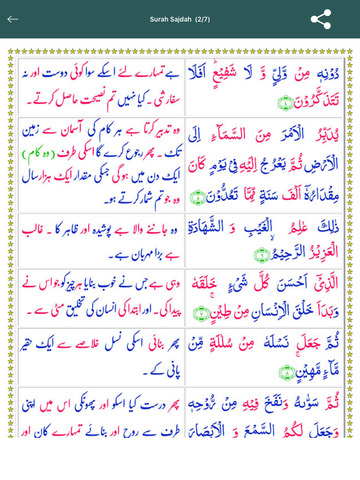 Surah Sajdah (2/7)
دُوْنِهٖ مِنْ وَّلِيٍّ وَّ لَا شَفِيْعٍ ؕ اَفَلَا
تَتَذَكَّرُوْنَ ﴿۴﴾
ہے تمہارے لئے اسکے سوا کوئی دوست اور نہ
سفارشی ۔ کیا نہیں تم نصیحت حاصل کرتے ۔
يُدَبِّرُ الْاَمْرَ مِنَ السَّمَآءِ اِلَى
الْاَرْضِ ثُمَّ يَعْرُجُ اِلَيْهِ فِيْ يَوْمٍ كَانَ
مِقْدَارُهٗۤ اَلْفَ سَنَةٍ مِّمَّا تَعُدُّوْنَ ﴿۵﴾
وہ تدبیر کرتا ہے ہر کام کی آسمان سے زمین
تک ۔ پھر رجوع کرے گا اسکی طرف (وہ کام)
ایک دن میں ہو گی جسکی مقدار ایک ہزار سال
وہ جو تم شمار کرتے ہو ۔
ذٰلِكَ عٰلِمُ الْغَيْبِ وَ الشَّهَادَةِ
الْعَزِيْزُ الرَّحِيْمُ ﴿۶﴾
وہ جاننے والا ہے پوشیدہ اور ظاہر کا ۔ غالب
ہے بڑا مہربان ہے ۔
الَّذِيْۤ اَحْسَنَ كُلَّ شَيْءٍ خَلَقَهٗ
وَبَدَاَ خَلْقَ الْاِنْسَانِ مِنْ طِيْنٍ ﴿۷﴾
وہی ہے جس نے خوب بنایا ہر چیز کو جو اس نے
پیدا کی ۔ اور ابتدا کی انسان کی تخلیق مٹی سے ۔
ثُمَّ جَعَلَ نَسْلَهٗ مِنْ سُلٰلَةٍ مِّنْ
مَّآءٍ مَّهِيْنٍ ﴿۸﴾
پھر بنائی اسکی نسل خلاصے سے ایک حقیر
پانی کے ۔
ثُمَّ سَوّٰىهُ وَنَفَخَ فِيْهِ مِنْ رُّوْحِهٖ
وَجَعَلَ لَكُمُ السَّمْعَ وَ الْاَبْصَارَ
پھر درست کیا اسکو اور پھونکی اس میں اپنی
طرف سے روح اور بنائے تمہارے کان اور